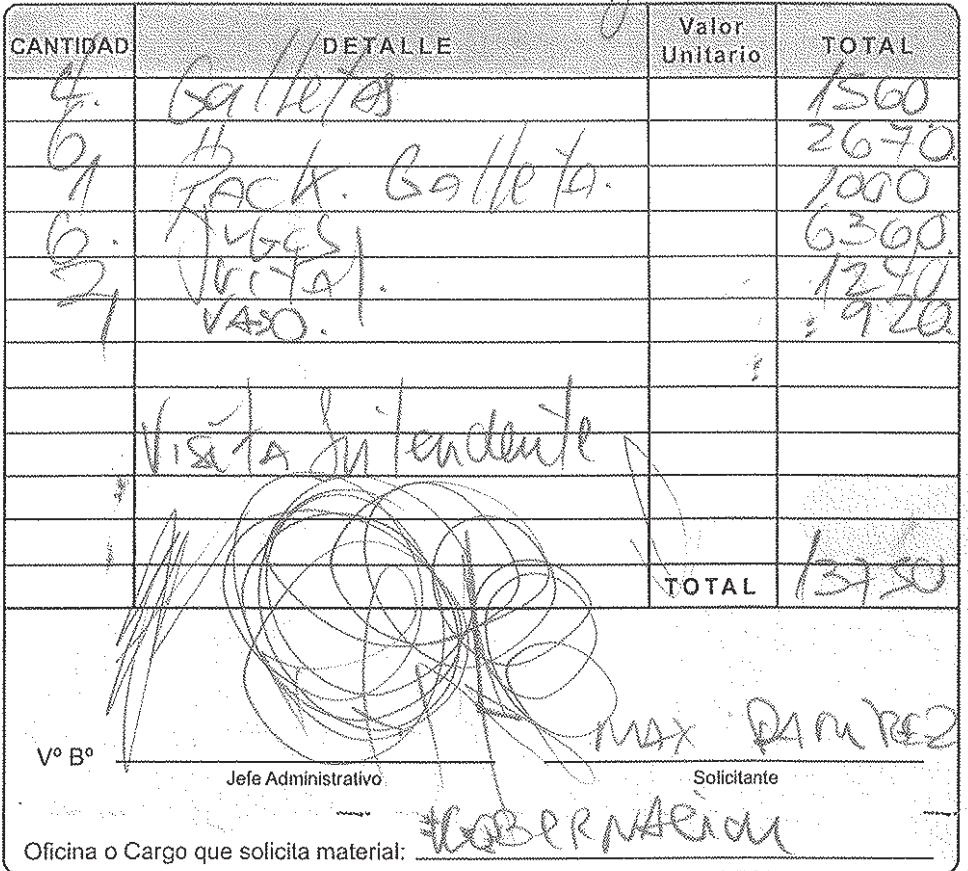 CANTIDAD DETALLE Valor Unitario TOTAL
4. Galletas 1560
6, " 2670.
1 PACK. Galleta. 1000
6. JUGOS 6360.
2, VITAL. 1240
1 VASO. 920.
Visita Intendente
TOTAL 13750
MAX RAMIREZ
Vº Bº
Jefe Administrativo Solicitante
Oficina o Cargo que solicita material: GOBERNACION